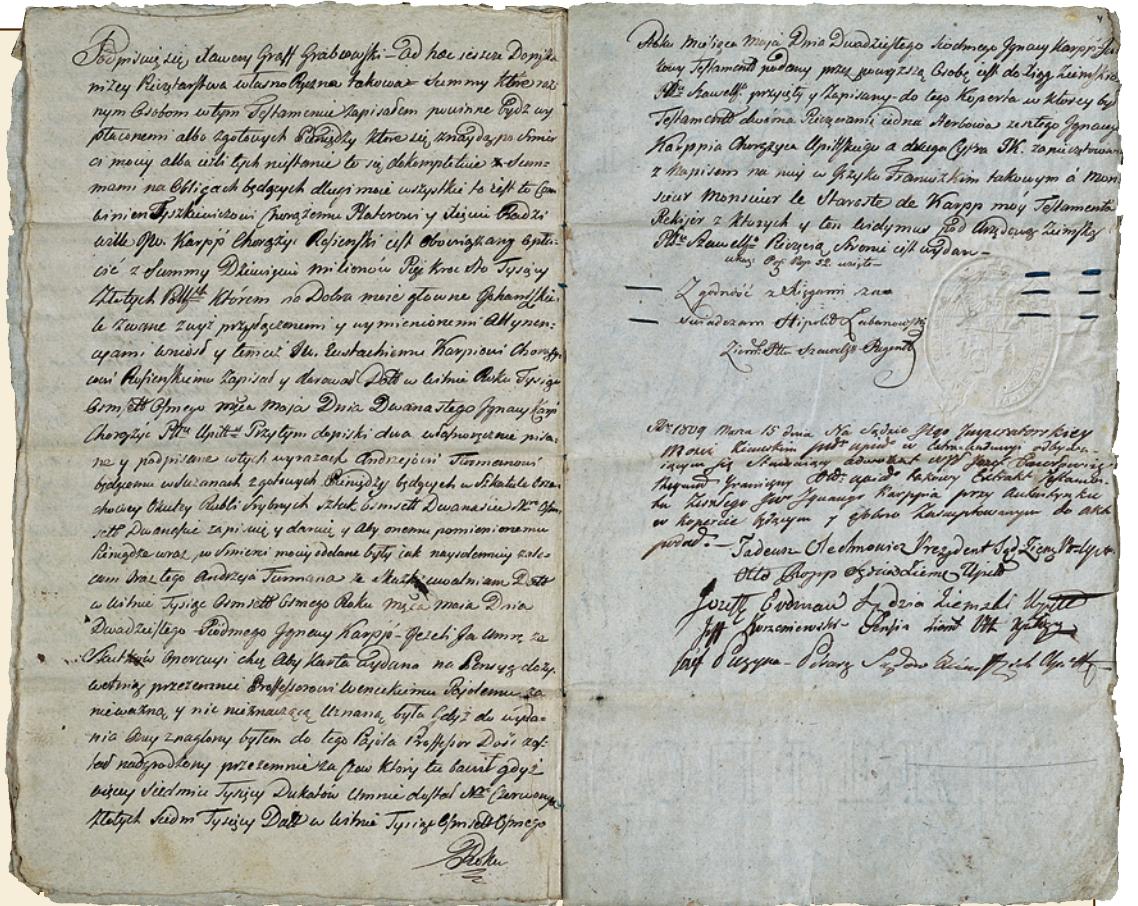 Podpisuię się Xawery Graff Grabowski - ad hoc
niżey Pieczętarstwa własno Ręczna takowa Summy które
nym Osobom w tym Testamencie zapisałem powinne bydź wy
płaconemi albo z gotowych Pieniędzy które się znaydą po Smier
ci moiey albo ieżli tych niestanie to się dokompletuie z Sum-
mami na Obligach będących długi moie wszystkie to iest to Com
winien Tyszkiewiczowi Chorążemu Platerowi y Xięciu Radzi
wille Jw. Karpp Chorąży Rosienski iest obowiązany opła-
cić z Summy Dziewięciu milionów Pięć Kroć Sto Tysięcy
Złotych Polskich którem na Dobra moie główne Johaniszkie-
le zwane z wyż przyłączonemi y wymienionemi Attynen-
cyami wniósł y temuż Jw. Eustachiemu Karpiowi Chorąży
cowi Rosieńskiemu zapisał y darował Datt w Wilnie Roku Tysiąc
Osmsett Osmego mśca Maja Dnia Dwanastego Jgnacy Karp
Chorążyc Pttu Upitt Przytym dopiski dwa własnoręcznie pisa-
ne y podpisane w tych wyrazach Andrzejowi Furmanowi
będącemu w Suzanach z gotowych Pieniędzy będących w Szkatule Orze-
chowey Okutey Rubli Srybnych Sztuk Osmsett Dwanaście Nro Osm
sett Dwanaście zapisuię y daruię y Aby onemu pomienionemu
Pieniądze wraz po Smierci moiey oddane były iak naysolenniey zale-
cam oraz tego Andrzeja Furmana ze Skazki uwalniam Datt
w Wilnie Tysiąc Osmsett Osmego Roku mśca Maia Dnia
Dwudziestego Siodmego Jgnacy Karpp - Jeżeli Ja Umrę za
Skutków operacyi chcę Aby Karta wydana na Pensyą doży
wotnią przezemnie Professorowi Weneckiemu Pajolemu za
nieważną y nic nieznaczącą Uznaną była Gdyż do wyda-
nia Oney znaglony byłem do tego Pajola Professor Dość zos-
tał nadgrodzony przezemnie za Czas który tu bawił gdyż
więcey Siedmiu Tysięcy Dukatów Umnie dostał Nro Czerwonych
Złotych Siedm Tysięcy Datt w Wilnie Tysiąc Osmsett Osmego
Roku
4
Roku miesiąca Maja Dnia Dwudziestego Siodmego Jgnacy Karpp
Testament podany przez powyższą Osobę iest do Xiąg Ziemskich
Pttu Szawell przyięty y Zapisany - do tego Koperta w ktorey był
Testament dwoma Pieczęciami iedna Herbowa zeszłego Jgnacego
Karppia Chorążyca Upitskiego a druga Cyfra JK. zapieczętowana
z Napisem na niey w Języku Francuzkim takowym à Mon
sieur Monsieur le Staroste de Karpp móy Testament
z których y ten widymus pod Urzędową Ziemską
Pttu Szawell Pieczęcią Stronie iest wydan -
Zgodność z Xięgami
Swiadczam Hipolit Łabanowski
Ziem. Pttu Szawelg Regent
Ru 1809 Marca 15 dnia Na Sądzie Jego Jmperatorskiey
Mości Ziemskim Pttu Upit w odbywa-
iącym się Stawaiący adwokat Jozef
Graniczny Ptt. Upit takowy Extrakt Testamen-
tu Zeszłego Jw Jgnacego Karppia przy
w Kopercie będącym do akt
podał. - Tadeusz Olechnowicz Prezydent Sąd Ziem
Otto Ropp Sędzia Ziems Upitt
Jozeff Erdman Sędzia Ziemski Upitt
Jozeff Korzeniewski - Sędzia Ziem Ptt
Jozef Puzyna - Pisarz